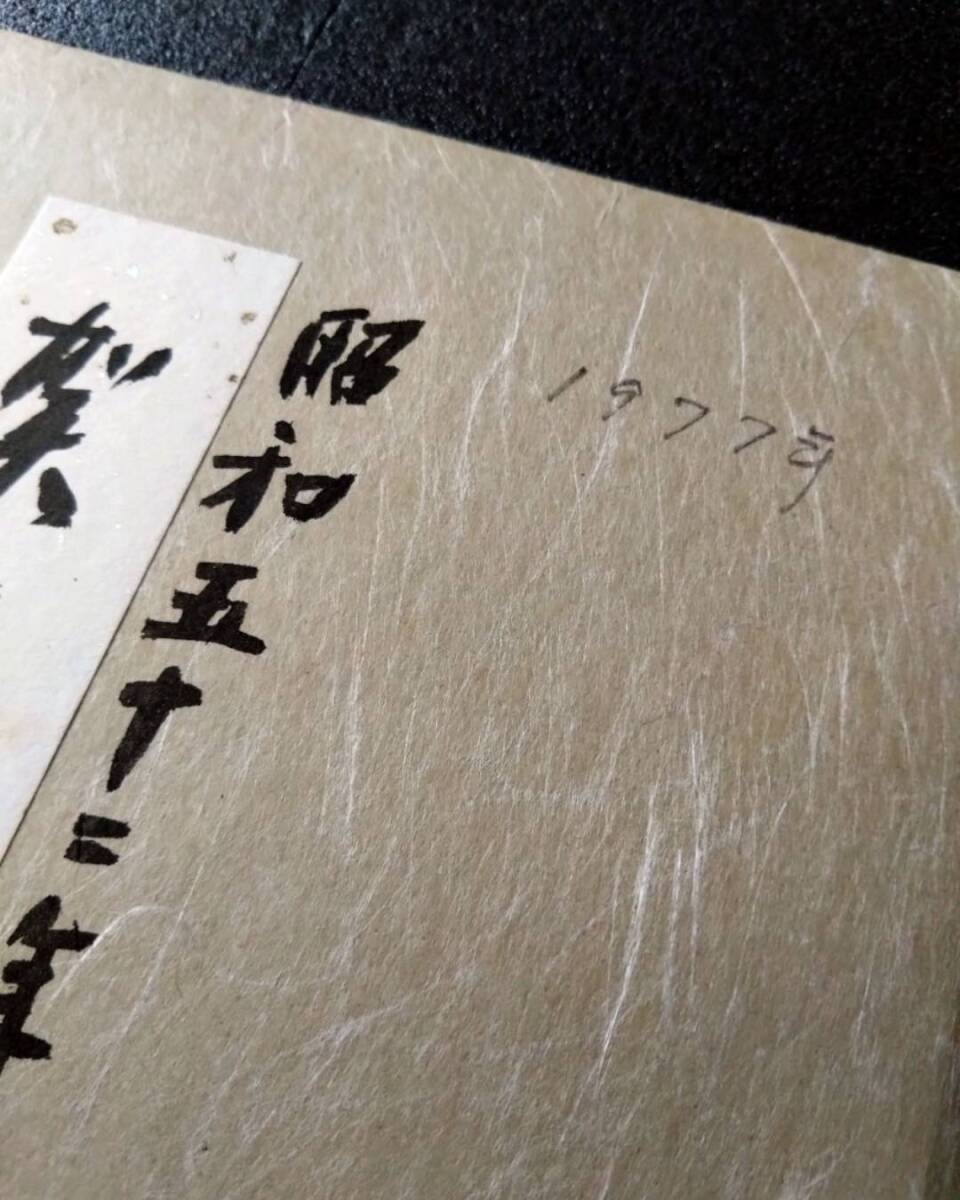 1977年
昭和五十二年
賀